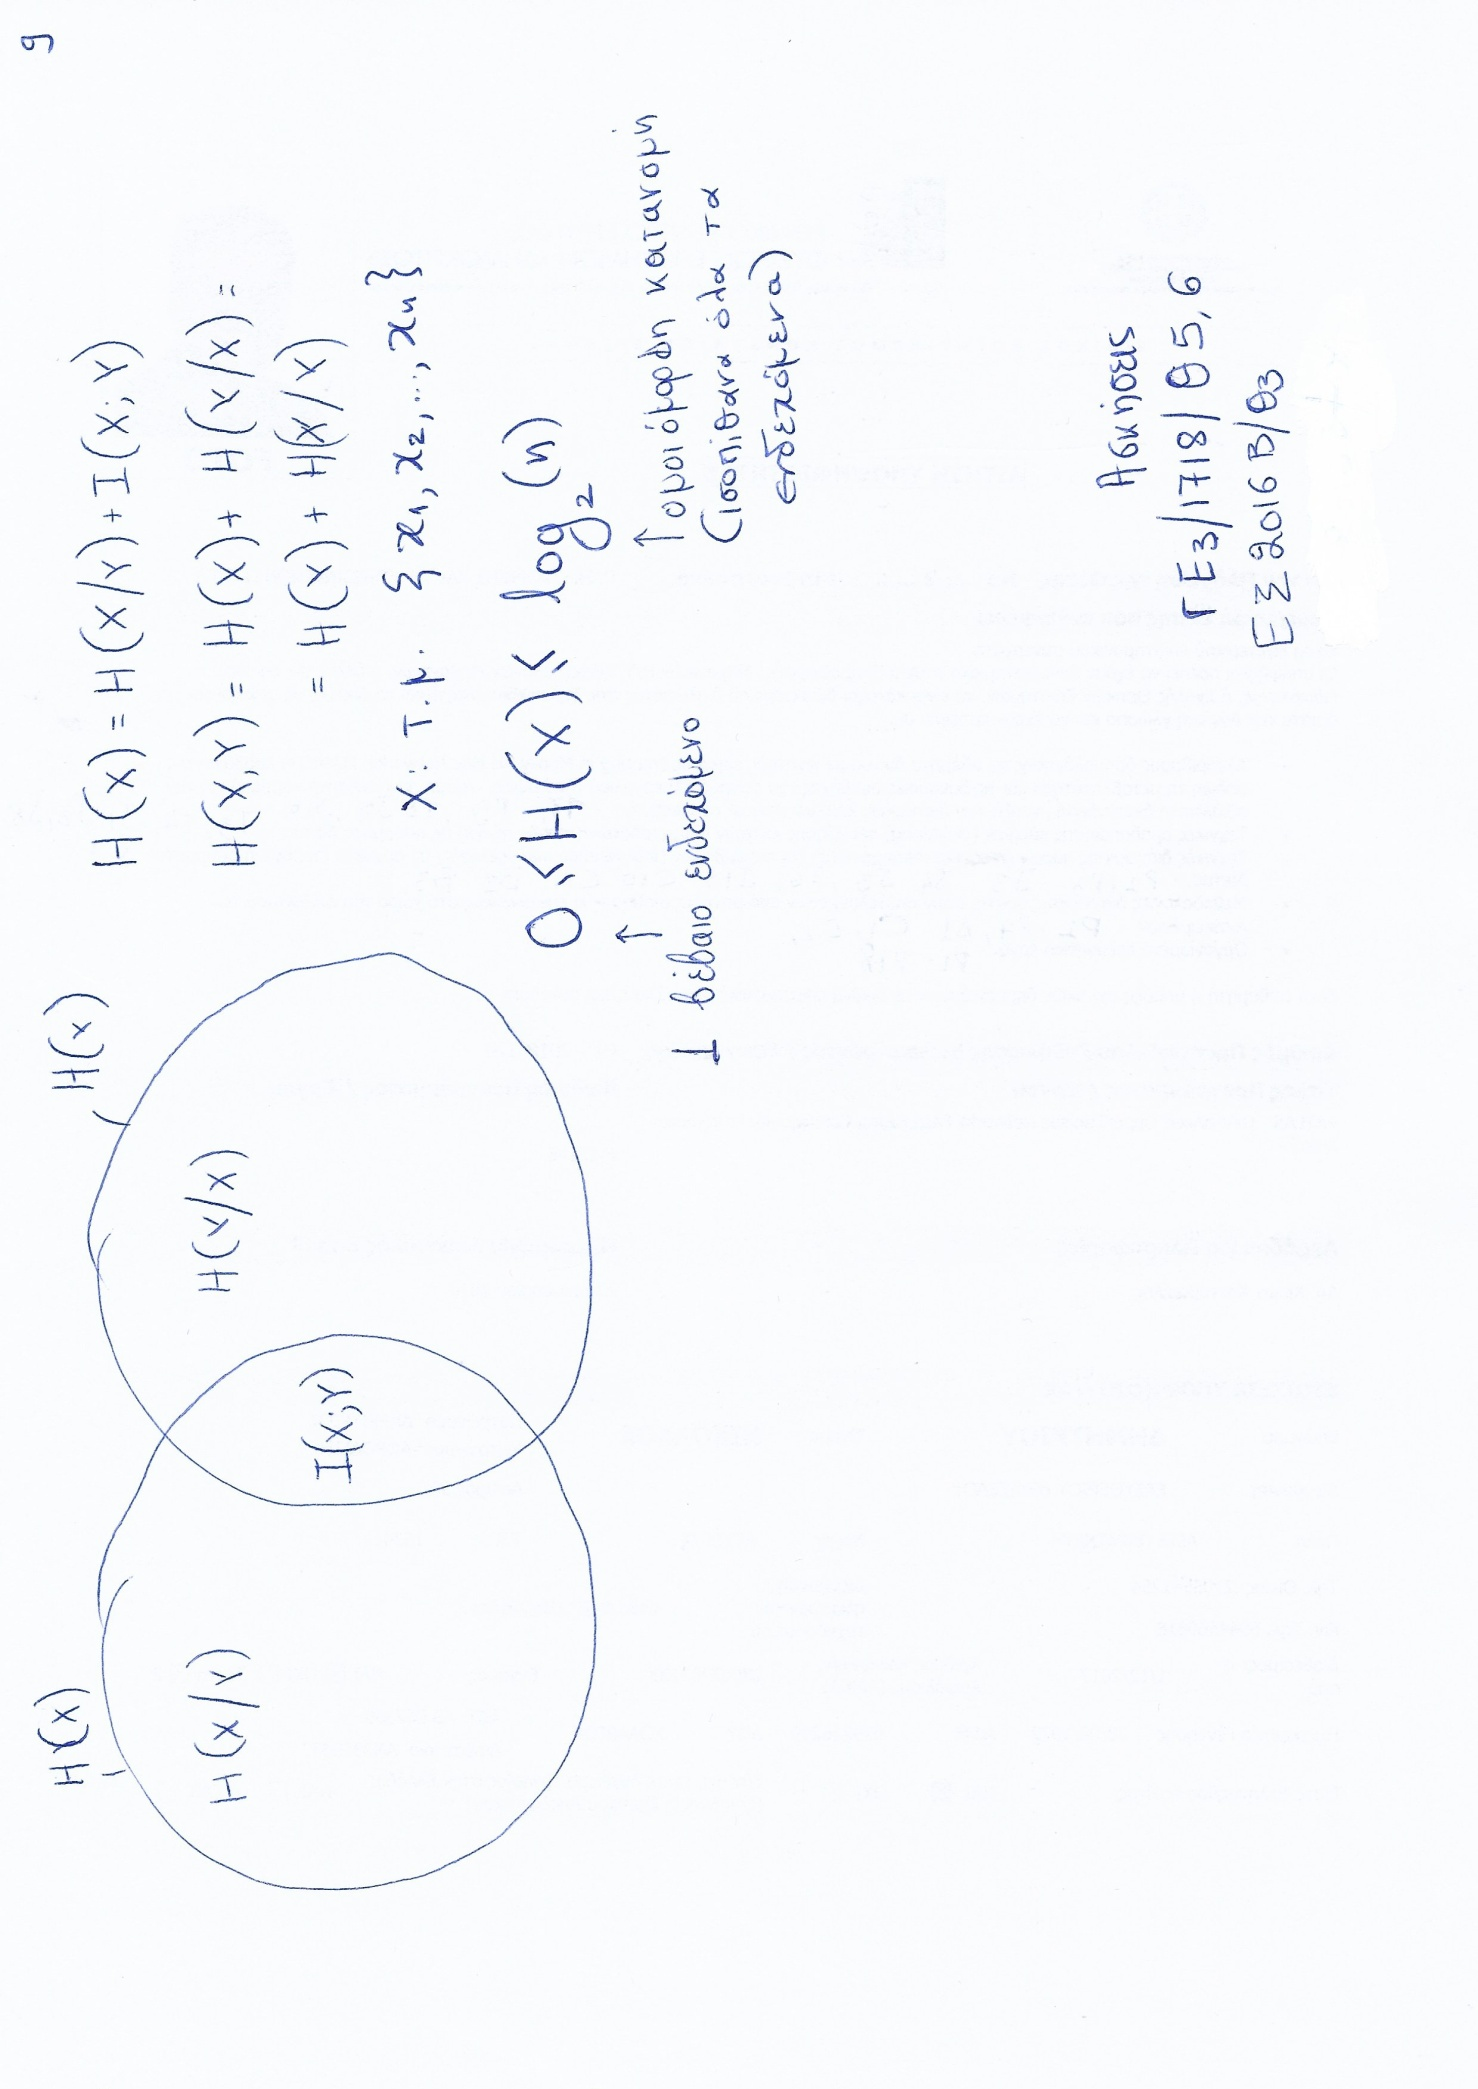 9
H(X)
H(X)
H(X/Y)
I(X;Y)
H(Y/X)
H(X) = H(X/Y) + I(X;Y)
H(X,Y) = H(X) + H(Y/X) =
= H(Y) + H(X/Y)
X: τ.μ. {x1, x2, ..., xn}
0 ≤ H(X) ≤ log2(n)
↑
1 βέβαιο ενδεχόμενο
↑ ομοιόμορφη κατανομή
(ισοπίθανα όλα τα
ενδεχόμενα)
Ασκήσεις
ΓΕ3/1718/Θ5,6
ΕΞ 2016Β/Θ3